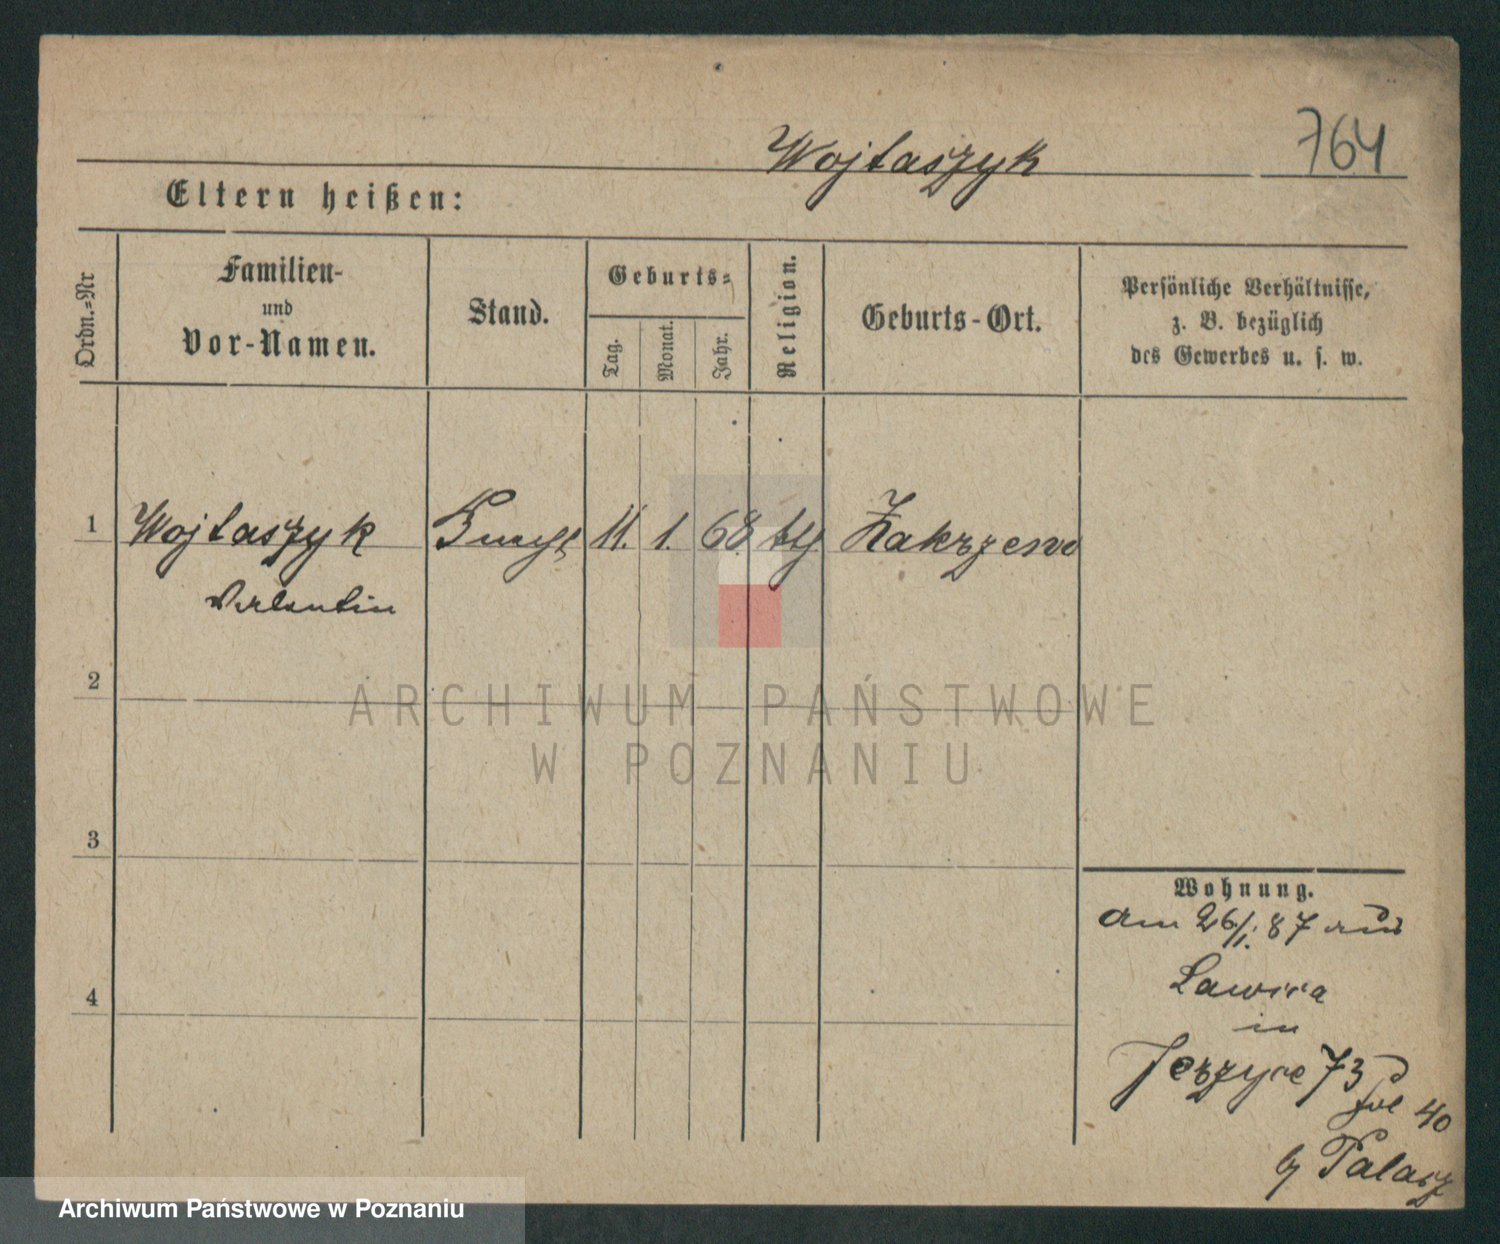 Wojtaszyk 764
Eltern heißen:
Ordn.=Nr
Familien-
und
Vor-Namen.
Stand.
Geburts=
Tag.
Monat.
Jahr.
Religion.
Geburts-Ort.
Persönliche Verhältnisse,
z. B. bezüglich
des Gewerbes u. s. w.
1 Wojtaszyk 11. 1. 68 Zakrzewo
Valentin
2
ARCHIWUM PAŃSTWOWE
W POZNANIU
3
Wohnung.
am 26/1. 87 aus
Lawica
4
in
Jerzyce 73
fol 40
by Palacz
Archiwum Państwowe w Poznaniu